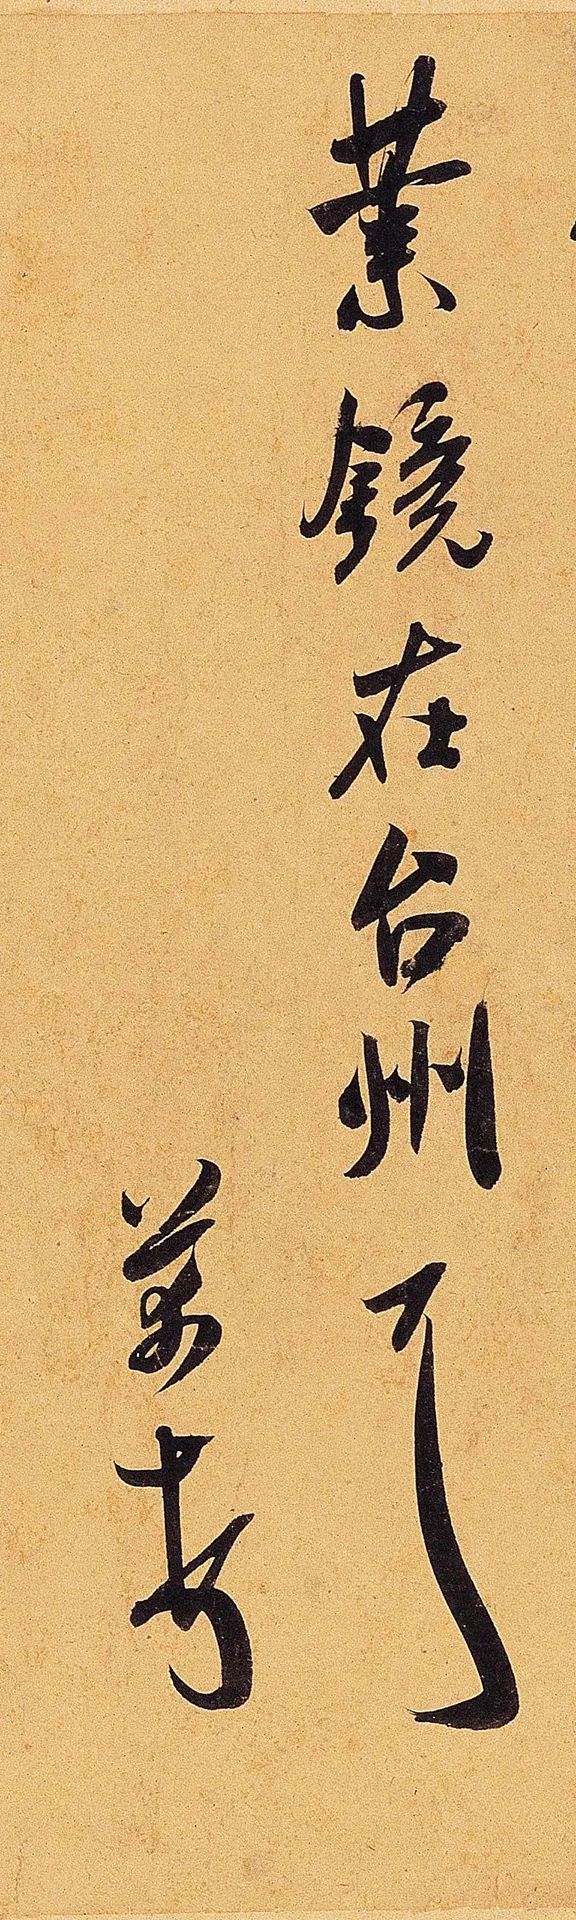 業鏡在台州了
萬